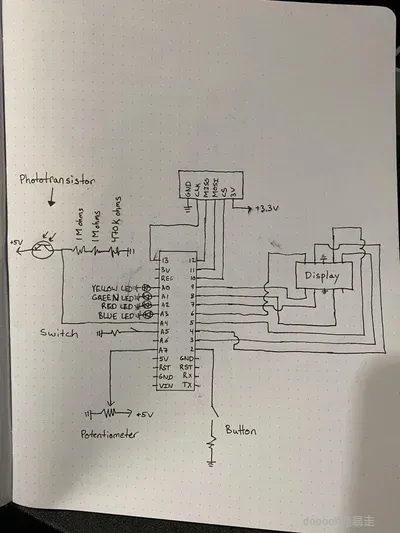 Phototransistor
1M ohms
1M ohms
470K ohms
+5V
GND
CLK
MISO
MOSI
CS
3V
+3.3V
13
3V
REF
A0
A1
A2
A3
A4
A5
A6
A7
5V
RST
GND
VIN
12
11
10
9
8
7
6
5
4
3
2
GND
RST
RX
TX
YELLOW LED
GREEN LED
RED LED
BLUE LED
Switch
Display
+5V
Potentiometer
Button